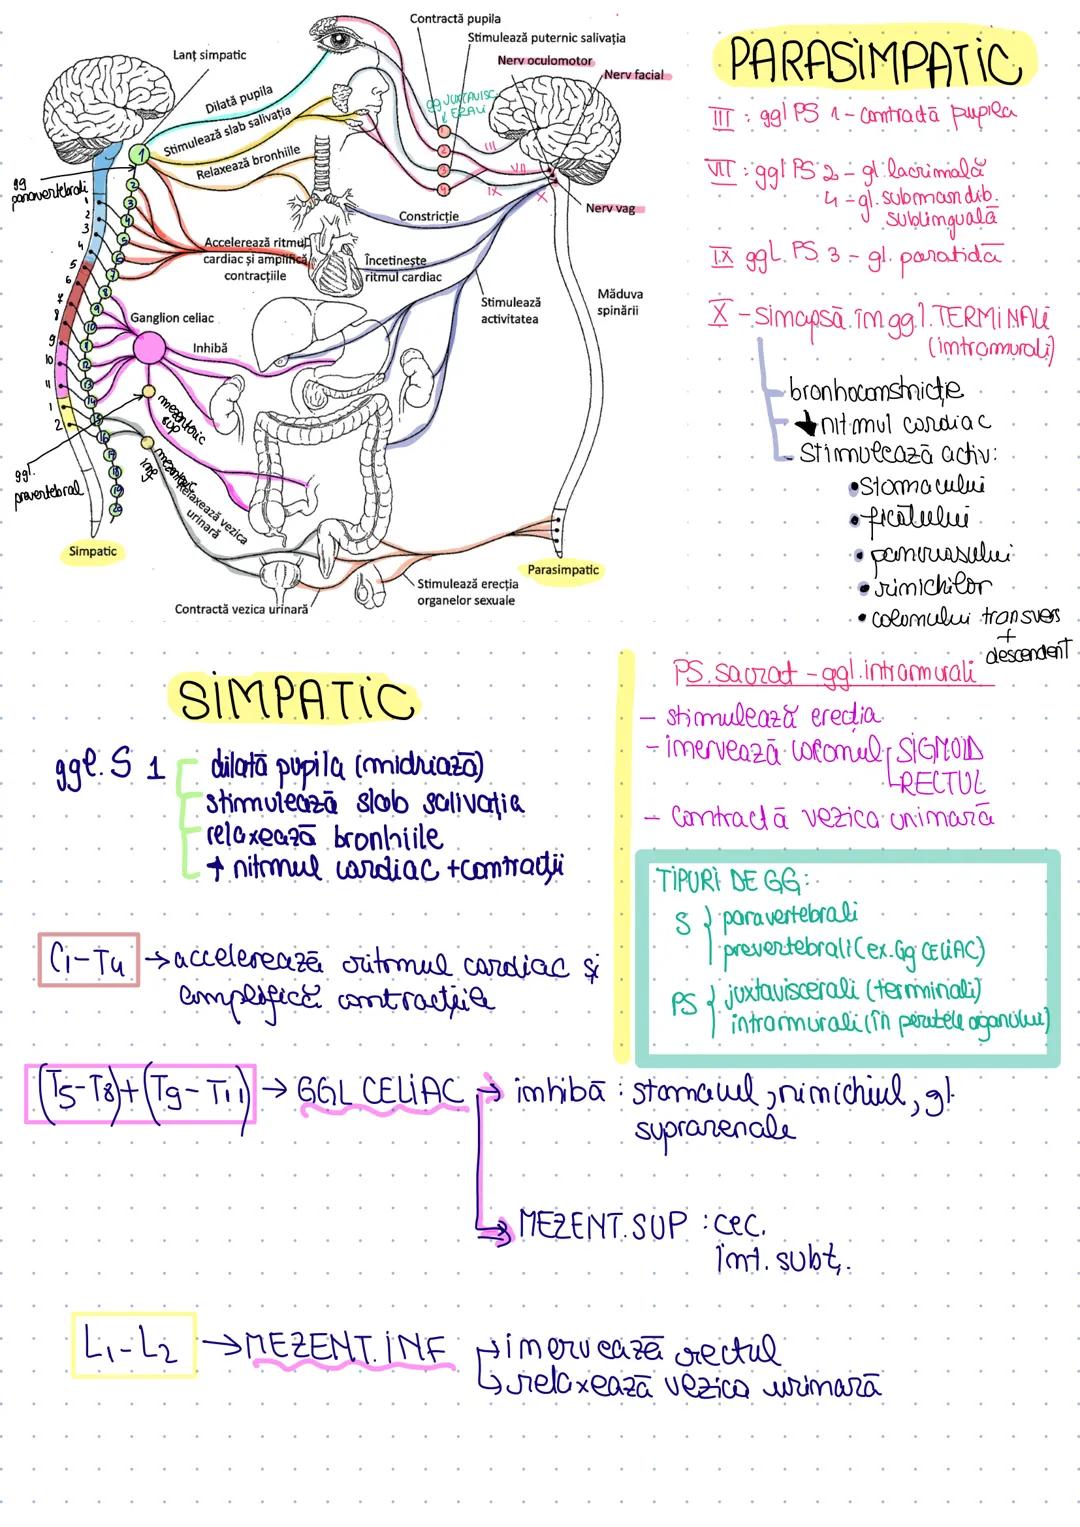 Contractă pupila
Stimulează puternic salivația
Nerv oculomotor
Nerv facial
Lanț simpatic
Dilată pupila
Stimulează slab salivația
Relaxează bronhiile
gg JUXTAVISC
ERALI
1
2
3
4
III
VII
IX
X
Nerv vag
gg
paravertebrali
Constricție
Accelerează ritmul
cardiac și amplifică
contracțiile
Încetinește
ritmul cardiac
Stimulează
activitatea
Măduva
spinării
Ganglion celiac
Inhibă
mezenteric
sup
mezenteric
inf
ggl.
prevertebral
Relaxează vezica
urinară
Simpatic
Parasimpatic
Stimulează erecția
organelor sexuale
Contractă vezica urinară
PARASIMPATIC
III : ggl PS 1 - contractă pupila
VII : ggl PS 2 - gl. lacrimală
4 - gl. submandib.
sublinguală
IX ggl. PS. 3 - gl. parotidă
X - Sinapsă în ggl. TERMINALI
(intramurali)
bronhoconstricție
↓ ritmul cardiac
Stimulează activ:
• Stomacului
• ficatului
• pancreasului
• rinichilor
• colonului transvers
+
descendent
SIMPATIC
ggl. S 1
dilată pupila (midriază)
stimulează slab salivația
relaxează bronhiile
↑ ritmul cardiac + contracții
C1-T4 → accelerează ritmul cardiac și
amplifică contracțiile
PS. sacrat - ggl. intramurali
- stimulează erecția
- inervează colonul SIGMOID
RECTUL
- Contractă vezica urinară
TIPURI DE GG:
S } paravertebrali
prevertebrali (ex. Gg CELIAC)
PS { juxtaviscerali (terminali)
intramurali (în peretele organului)
(T5-T8)+(T9-T11) → GGL CELIAC → inhibă : stomacul, rinichiul, gl.
suprarenale
MEZENT. SUP : cec.
int. subț.
L1-L2 → MEZENT. INF → inervează rectul
→ relaxează vezica urinară